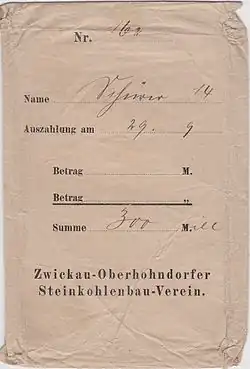 Nr. 162
Name Schürer 14
Auszahlung am 29. 9
Betrag M.
Betrag „
Summe 300 Mill
Zwickau-Oberhohndorfer
Steinkohlenbau-Verein.